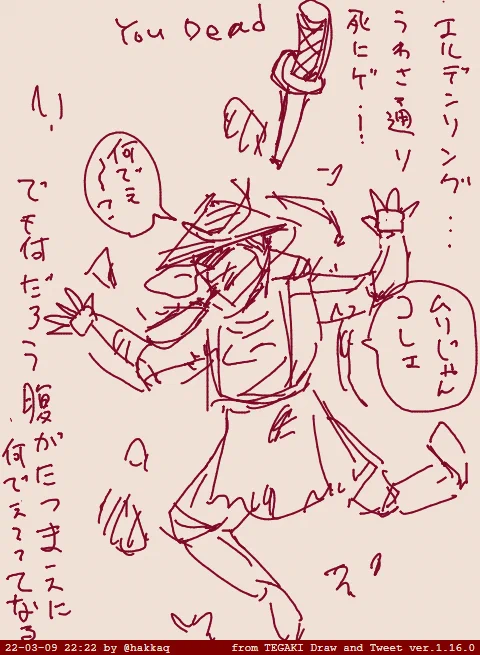 エルデンリング…
うわさ通り
死にゲー!
You Dead
何でぇ
〜?
ムリじゃん
コレェ
でも何だろう腹がたつまえに
何でぇってなる
22-03-09 22:22 by @hakkaq
from TEGAKI Draw and Tweet ver.1.16.0